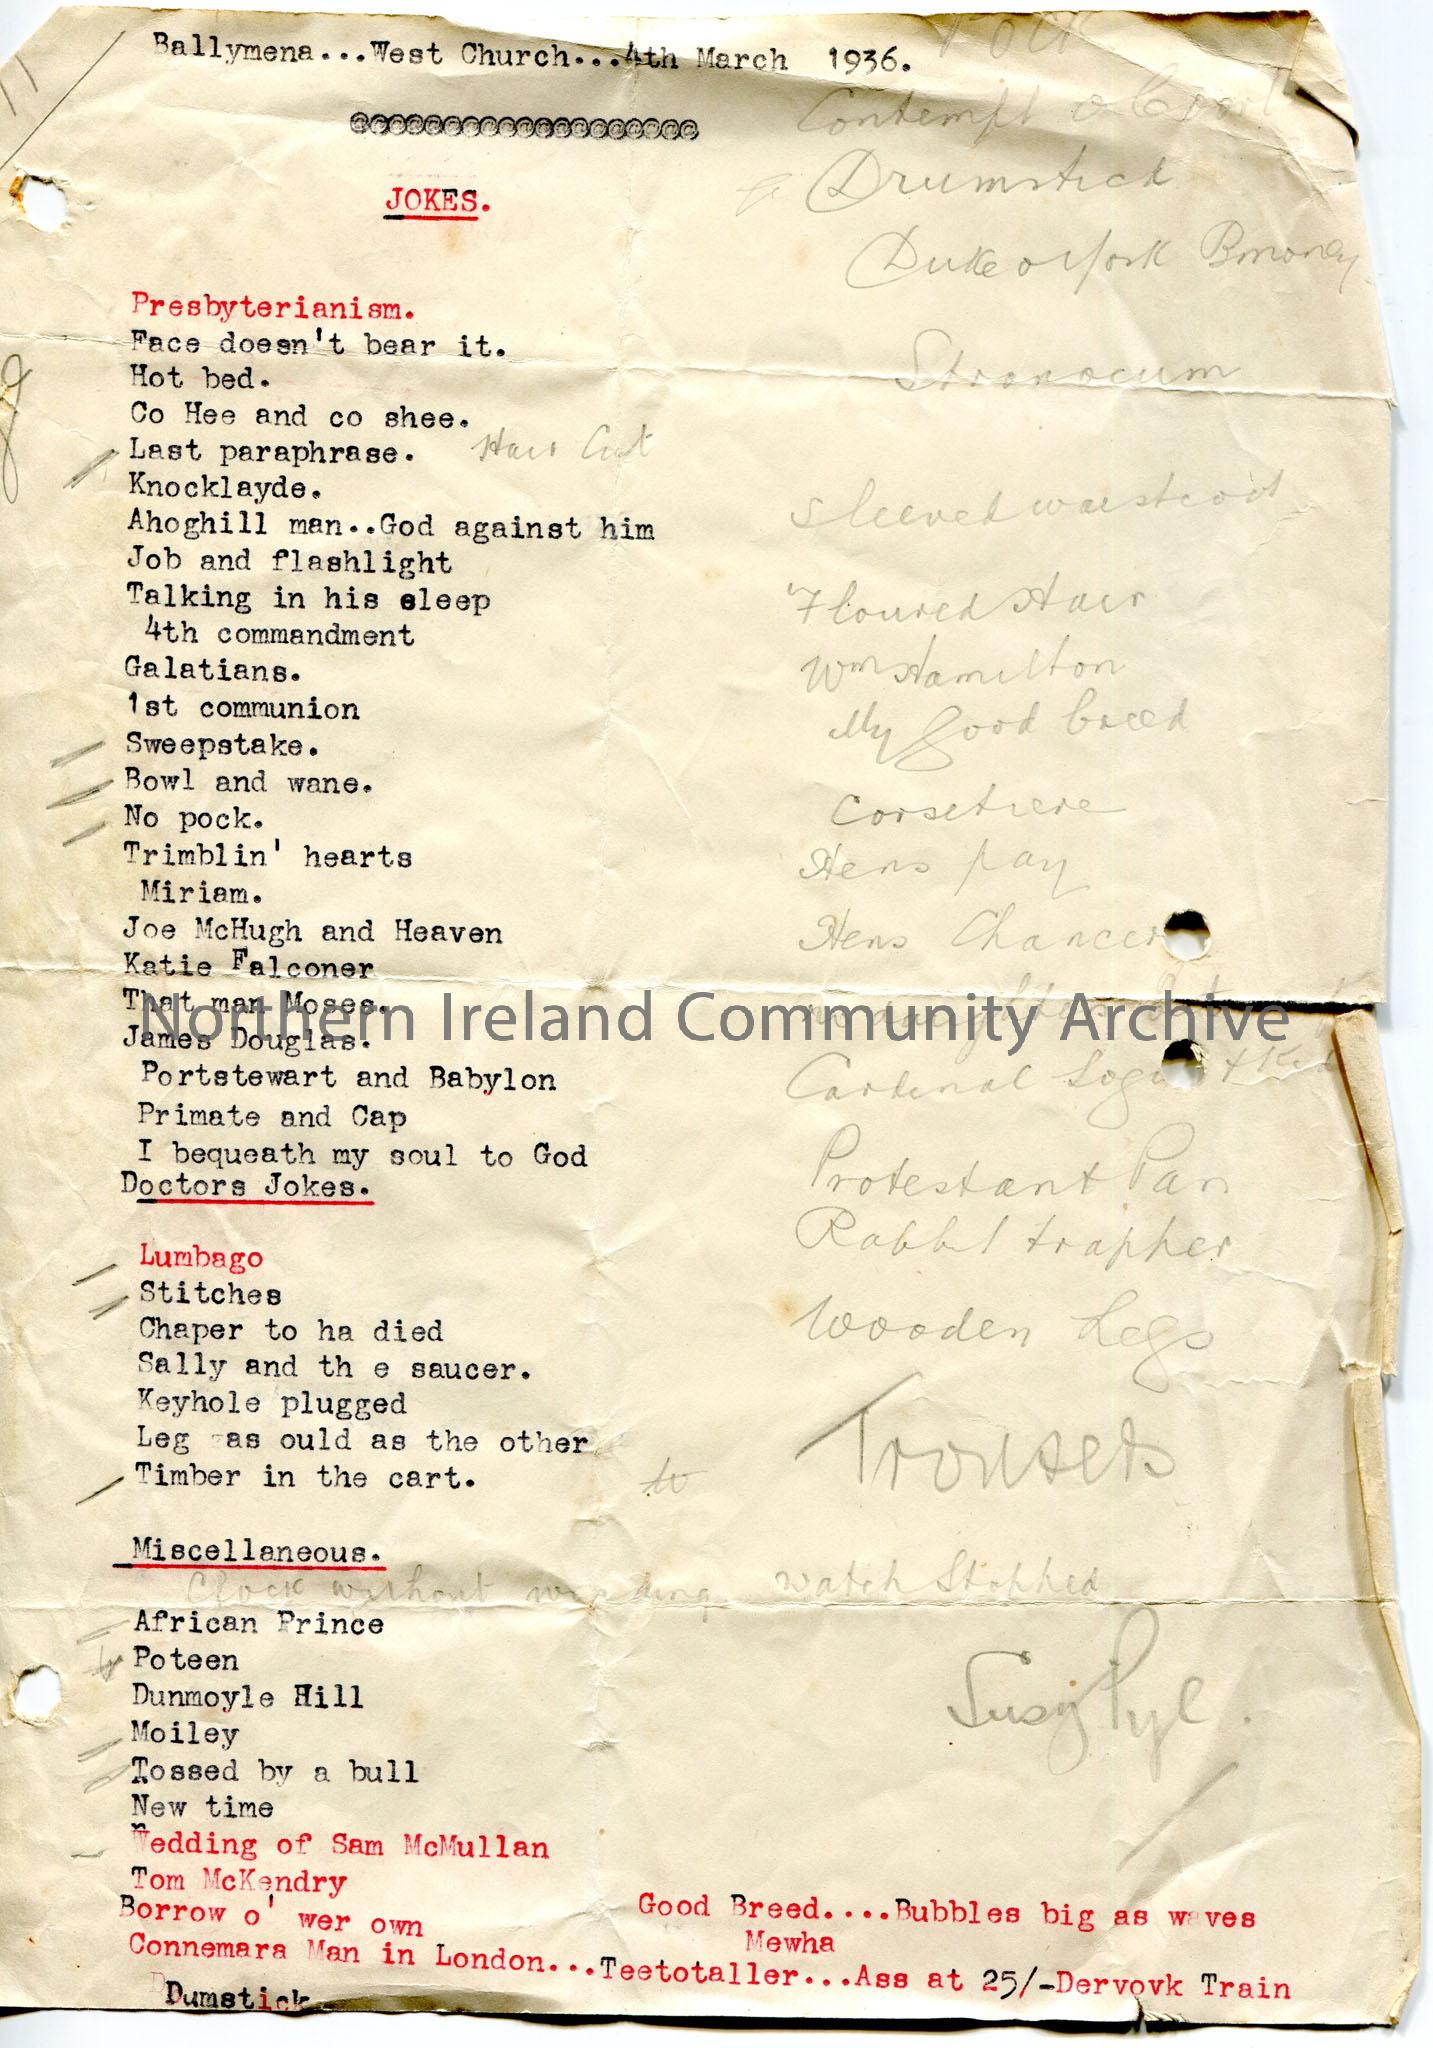 Ballymena...West Church...4th March 1936.
@@@@@@@@@@@@@@@@@@@
Contempt o Court
JOKES.
Drumstick
Duke o York
Presbyterianism.
Face doesn't bear it.
Hot bed.
Stranocum
Co Hee and co shee.
Last paraphrase. Hair Cut
Knocklayde.
Sleeved waistcoat
Ahoghill man..God against him
Job and flashlight
Talking in his sleep
Floured Hair
4th commandment
Galatians.
Wm Hamilton
1st communion
My good breed
Sweepstake.
Bowl and wane.
Corsetiere
No pock.
Trimblin' hearts
Hens pay
Miriam.
Joe McHugh and Heaven
Hens Chancer
Katie Falconer
That man Moses.
Northern Ireland Community Archive
James Douglas.
Portstewart and Babylon
Cardinal
Primate and Cap
I bequeath my soul to God
Protestant Pan
Doctors Jokes.
Rabbit trapper
Lumbago
Stitches
Chaper to ha died
Wooden Legs
Sally and th e saucer.
Keyhole plugged
Leg as ould as the other
Timber in the cart.
Trousers
Miscellaneous.
Clock without winding watch Stopped
African Prince
Poteen
Dunmoyle Hill
Susy Pyl.
Moiley
Tossed by a bull
New time
Wedding of Sam McMullan
Tom McKendry
Borrow o' wer own
Good Breed....Bubbles big as waves
Mewha
Connemara Man in London...Teetotaller...Ass at 25/-Dervovk Train
Dumstick